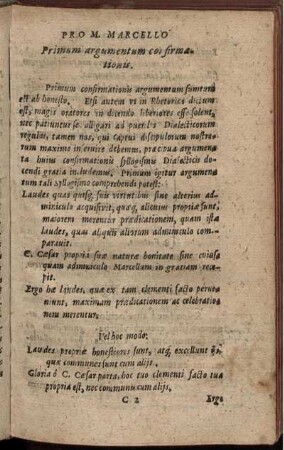 PRO M. MARCELLO
Primum argumentum confirma-
tionis.
Primum confirmationis argumentum sumtum
est ab honesto. Est autem vt in Rhetorica dictum
est, magis oratores in dicendo liberiores esse solent,
nec patiuntur se alligari ad pueriles Dialecticorum
regulas, tamen nos, qui captui discipulorum nostro-
rum maxime in servire debemus, præcipua argumen-
ta huius confirmationis syllogismis Dialecticis do-
cendi gratia includemus, Primum igitur argumen-
tum tali syllogismo comprehendi potest:
Laudes quas quisq; suis virtutibus sine alterius ad-
miniculo acquisivit, quæq; alienæ propriæ sunt,
maiorem merentur prædicationem, quam istæ
laudes, quas aliquis aliorum adminiculo com-
parauit.
C. Cæsar propria suæ naturæ bonitate sine cuiusq
quam adminiculo Marcellum in gratiam rece-
pit.
Ergo hæ laudes, quæ ex tam clementi facto perue-
niunt, maximum prædicationem ac celebratio-
nem merentur.
Vel hoc modo:
Laudes propriæ honestiores sunt, atq; excellunt eas,
quæ communes sunt cum alijs.
Gloria ô C. Cæsar parta, hoc tuo clementi facto tua
propria est, nec communis cum alijs.
C 2 Ergo